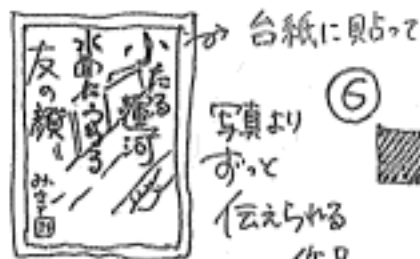 小たる運河
水面にうつる
友の顔
みさを
台紙に貼って
⑥
写真より
ずっと
伝えられる
作品